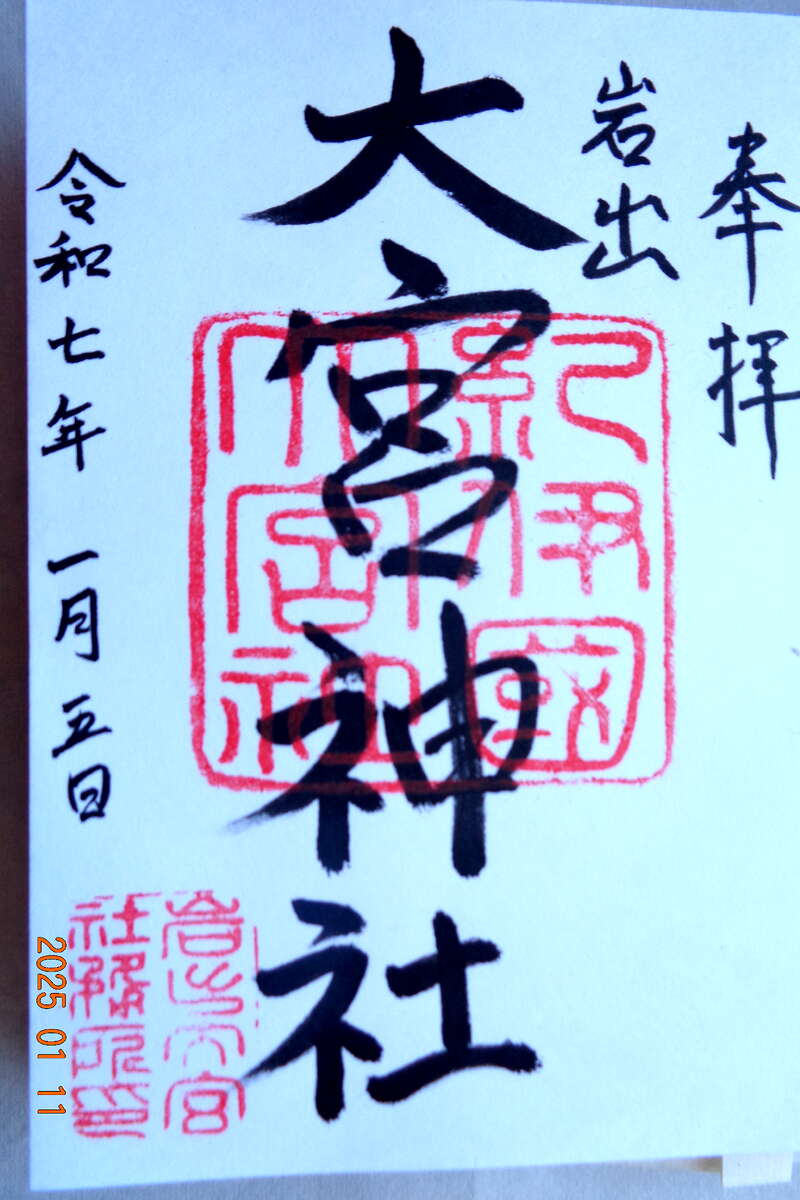 奉拝
岩出
大宮神社
令和七年 一月五日
紀伊國
大宮神
岩出大宮
社務所印
2025 01 11